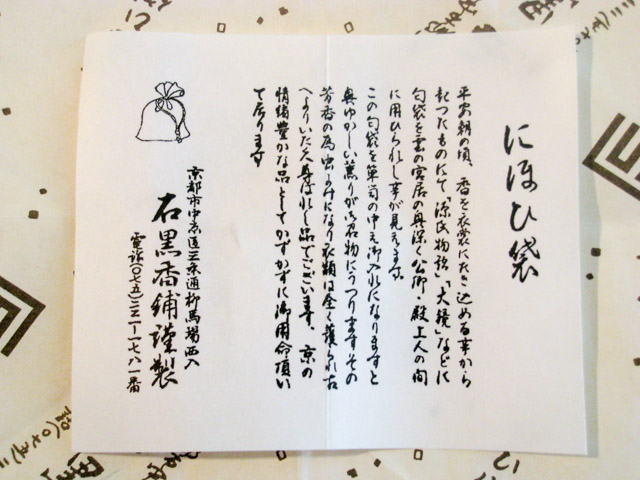 にほひ袋
平安朝の頃、香を衣裳にたき込める事から
起つたものにて「源氏物語」「大鏡」などに
匂袋を雲の宮居の奥深く公卿・殿上人の間
に用ひられし事が見えます。
この匂袋を箪笥の中え御入れになりますと
奥ゆかしい薫りが御召物にうつりますその
芳香の為虫よけになり衣類は全く護られ古
へよりいた く尊ばれし品でございます。京の
情緒豊かな品としてかずかずに御用命頂い
て居ります
京都市中京区三条通柳馬場西入
石黒香舗謹製
電話(〇七五)二二一-一七八一番